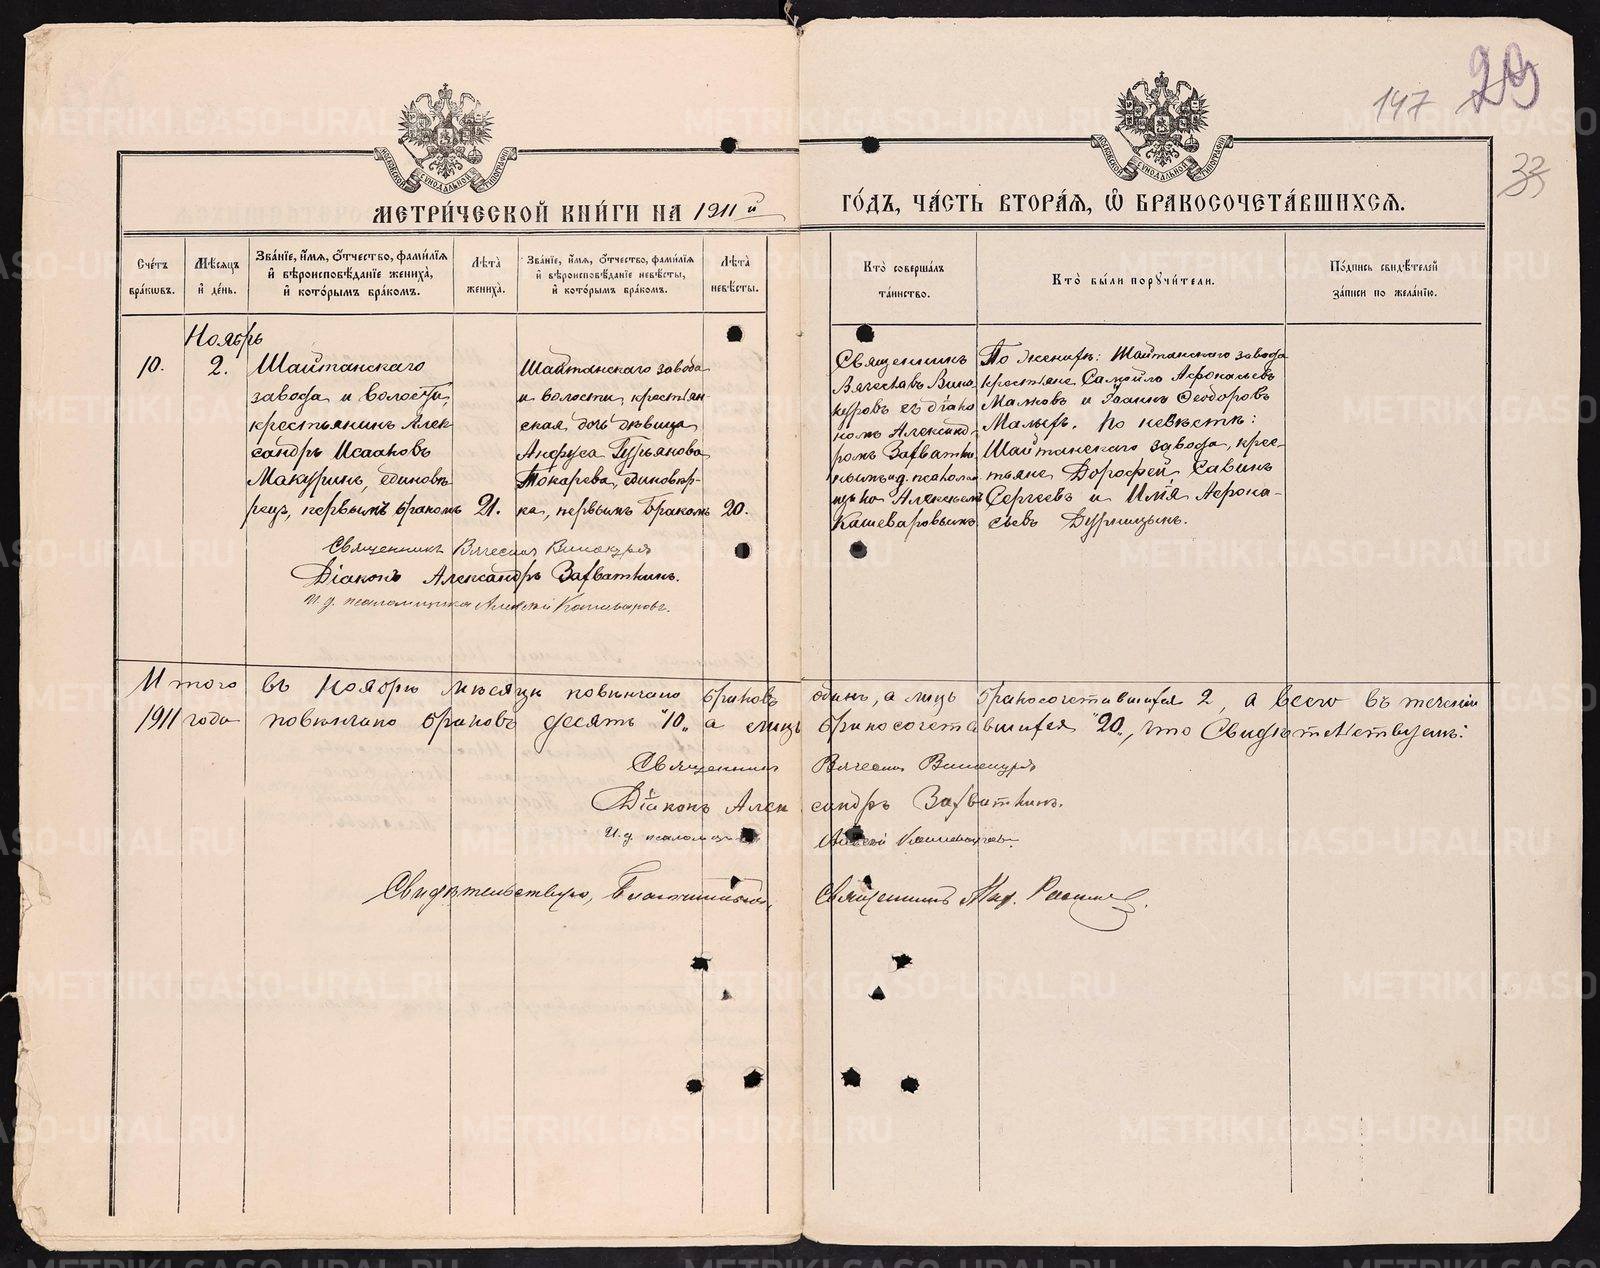 147 29
33
МОСКОВСКОЙ СѴНОДАЛЬНОЙ ТИПОГРАФІИ
МОСКОВСКОЙ СѴНОДАЛЬНОЙ ТИПОГРАФІИ
МЕТРИ́ЧЕСКОЙ КНИ́ГИ НА 1911й
ГО́ДЪ, ЧА́СТЬ ВТОРА́Я, Ѽ БРАКОСОЧЕТА́ВШИХСЯ.
Сче́тъ бра́кѡвъ.
Мѣ́сяцъ и҆ де́нь.
Зва́нїе, и҆́мя, ѻ҆́тчество, фами́лїя и҆ вѣроисповѣ́данїе жениха̀, и҆ кото́рымъ бра́комъ.
Лѣ́та жениха̀.
Зва́нїе, и҆́мя, ѻ҆́тчество, фами́лїя и҆ вѣроисповѣ́данїе невѣ́сты, и҆ кото́рымъ бра́комъ.
Лѣ́та невѣ́сты.
Кто̀ соверша́лъ та́инство.
Кто̀ бы́ли порꙋчи́тели.
По́дпись свидѣ́телей за́писи по жела́нїю.
Ноябрь
10.
2.
Шайтанскаго
завода и волости,
крестьянинъ Алек
сандръ Исааковъ
Макуринъ, единовѣ
рецъ, первымъ бракомъ
21.
Шайтанскаго завода
и волости, крестьян-
ская дочь дѣвица
Анфуса Гурьянова
Токарева, единовѣр-
ка, первымъ бракомъ
20.
Священникъ
Вячеславъ Вино
куровъ съ діако
номъ Александ-
ромъ Захватки
нымъ и.д. псалом
щика Алексѣемъ
Кашеваровымъ
По женихѣ: Шайтанскаго завода
крестьяне Самойло Афонасьевъ
Малковъ и Іоаннъ Феодоровъ
Малыхъ. По невѣстѣ:
Шайтанскаго завода, крес-
тьяне Дорофей Савинъ
Сергеевъ и Илія Афона-
сьевъ Дурницынъ.
Священникъ Вячеслав Винокуров
Діаконъ Александръ Захваткинъ.
И.д. псаломщика Алексѣй Кашеваровъ.
Итого въ Ноябрѣ мѣсяцѣ повѣнчано браковъ одинъ, а лицъ бракосочетавшихся 2, а всего въ теченіи
1911 года повѣнчано браковъ десять "10„ а лицъ бракосочетавшихся "20„, что Свидѣтельствуемъ:
Священникъ Вячеслав Винокуров
Діаконъ Александръ Захваткинъ.
И.д. псаломщика Алексѣй Кашеваровъ
Свидѣтельствую, Благочинный, Священникъ